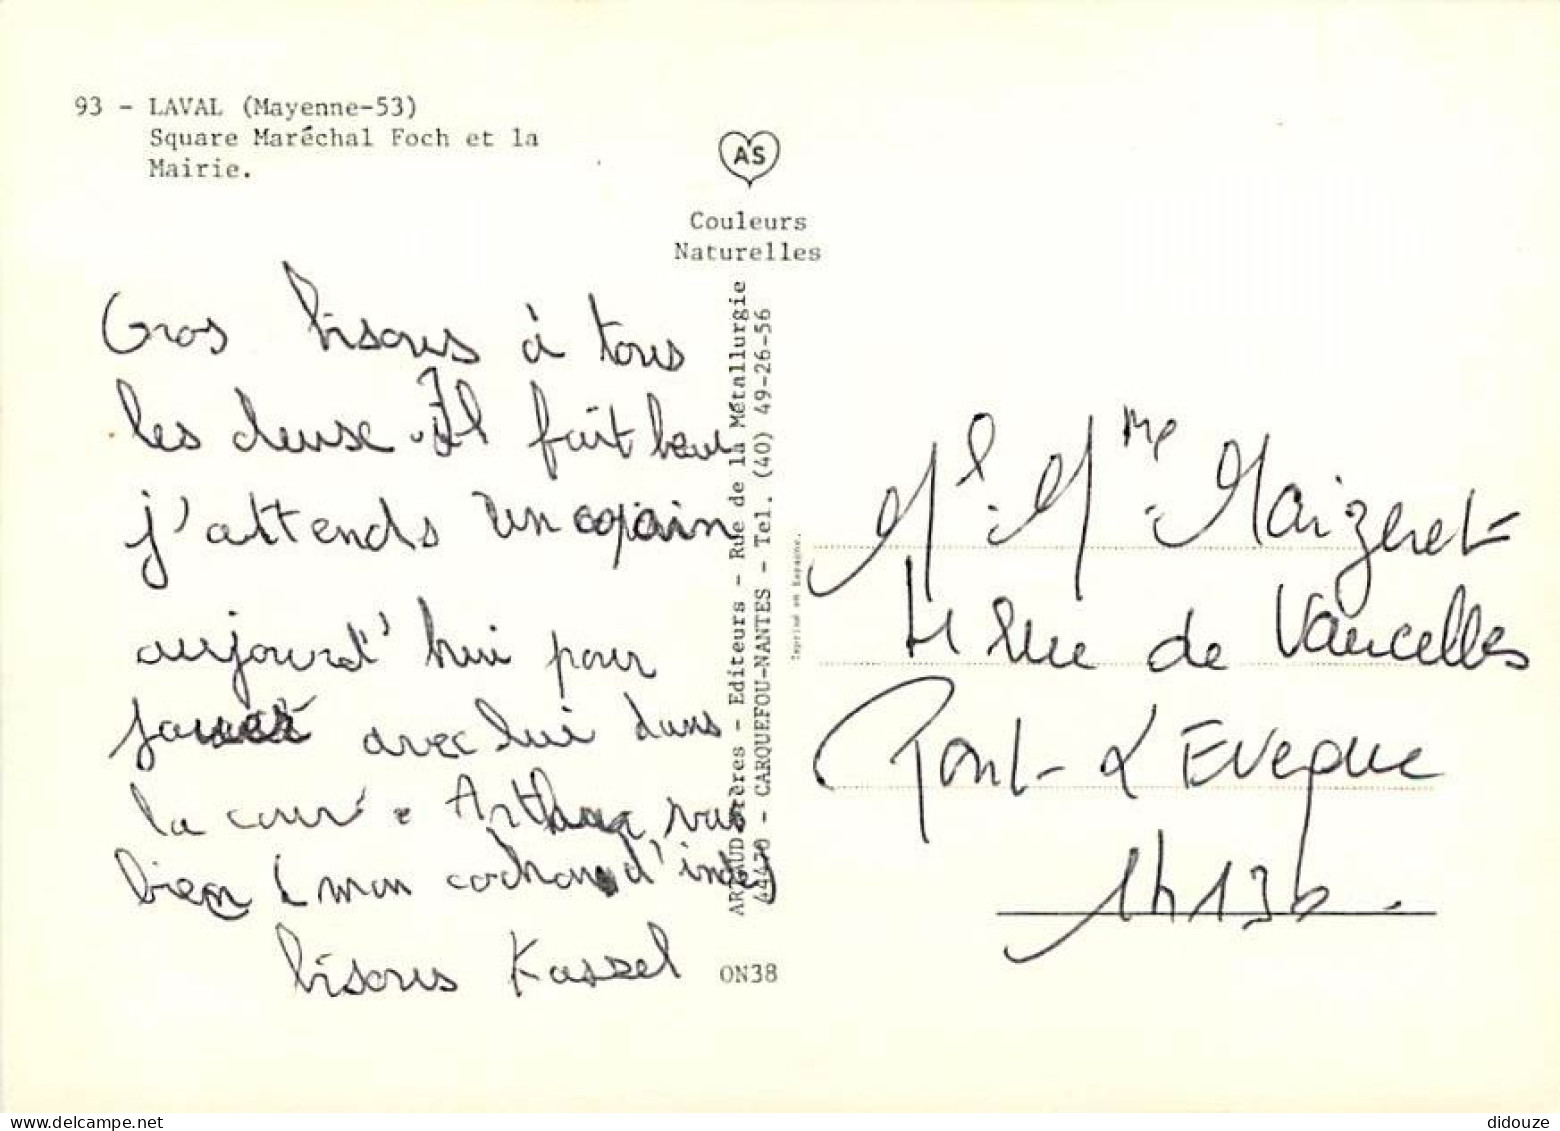 93 - LAVAL (Mayenne-53)
Square Maréchal Foch et la
Mairie.
AS
Couleurs
Naturelles
Gros bisous à tous
les deuse. Il fait beau
j'attends un copain
aujourd'hui pour
jouer avec lui dans
la cour. Arthur vas
bien (mon cochon d'inde)
bisous Kassel
ARTAUD Frères - Editeurs - Rue de la Métallurgie
44470 - CARQUEFOU-NANTES - Tel. (40) 49-26-56
ON38
Imprimé en Espagne.
Mme Maizeret
Rue de Vaucelles
Pont-L'Eveque
14130.
delcampe.net
didouze